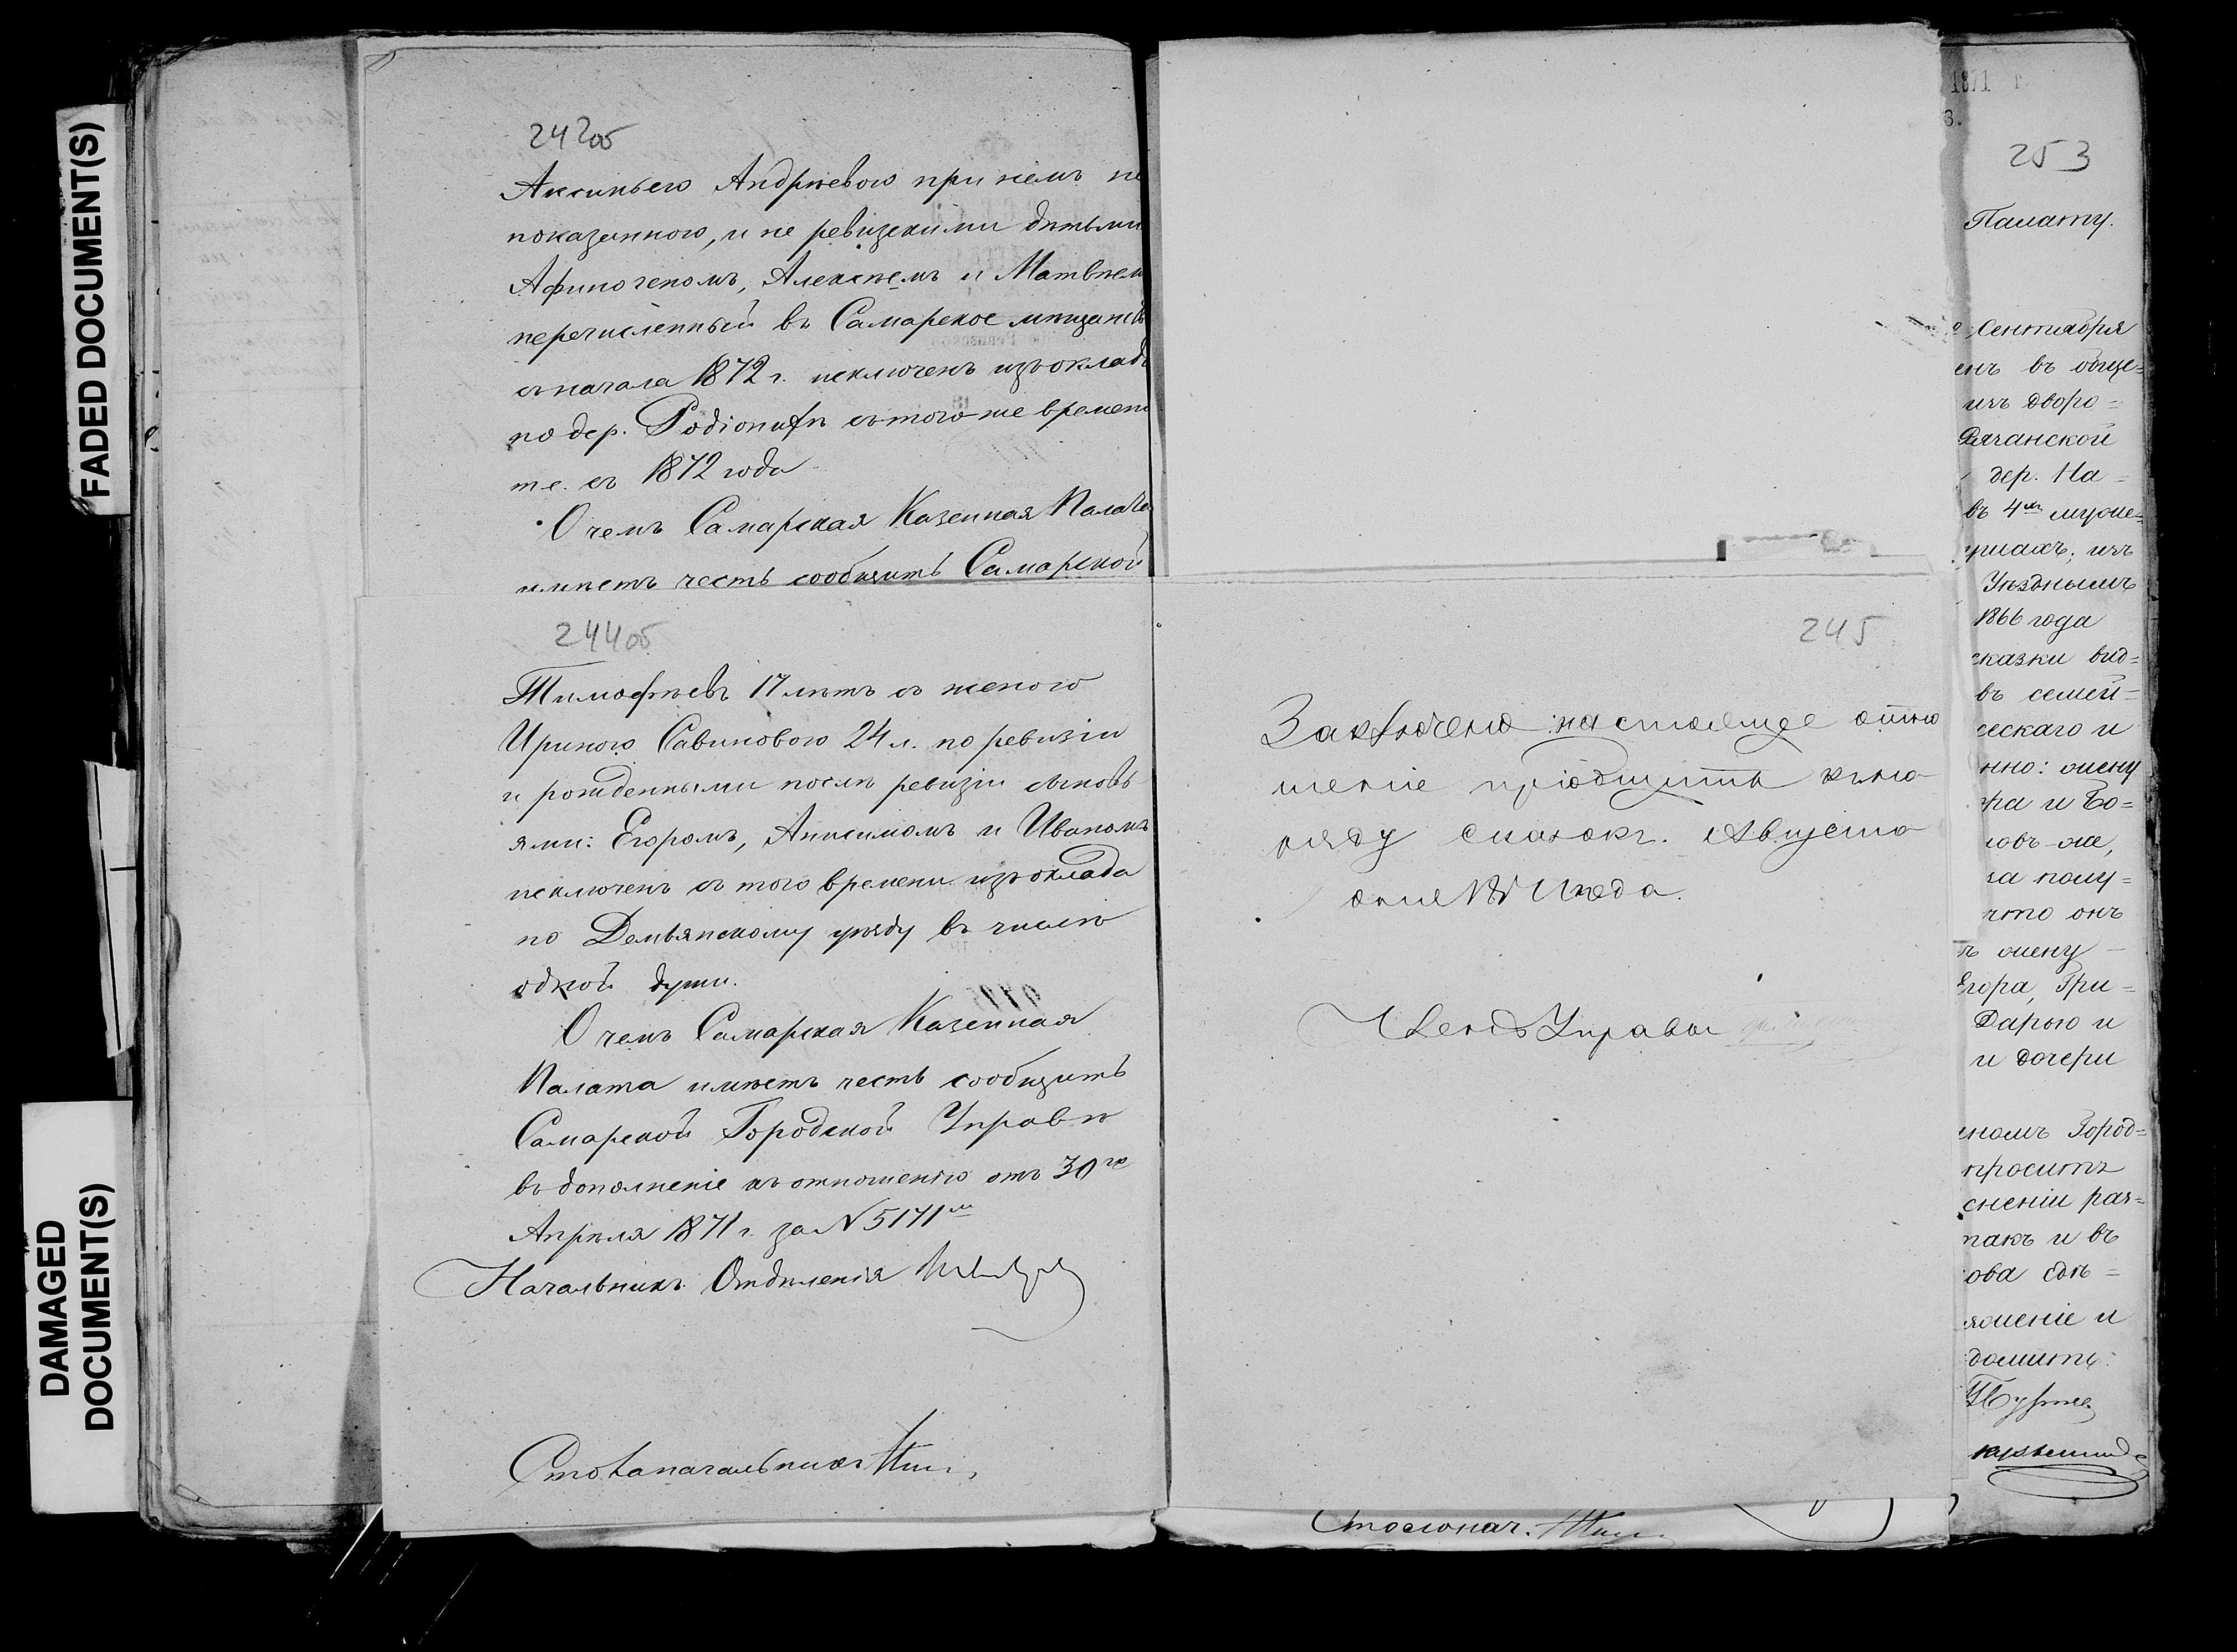 FADED DOCUMENT(S)
DAMAGED
DOCUMENT(S)
242об
Аксиньею Андрѣевою при немъ не
показанною, и не ревизскими дѣтьми
Афиногеномъ, Алексѣемъ и Матвѣем
перечисленный въ Самарское мѣщанств
съ начала 1872 г. исключенъ изъ оклада
по дер. Родіоновк съ того же времени
т.е. съ 1872 года
О чемъ Самарская Казенная Палата
имѣетъ честь сообщить Самарской
244об
Тимофѣевъ 17 лѣтъ съ женою
Ириною Савиновою 24 л. по ревизіи
и рожденными послѣ ревизіи сыновь
ями: Егоромъ, Анисимомъ и Иваномъ
исключенъ съ того времени изъ оклада
по Демьянскому уѣзду въ числѣ
одной души.
О чемъ Самарская Казенная
Палата имѣетъ честь сообщить
Самарской Городской Управѣ
въ дополненіе къ отношенію отъ 30го
Апрѣля 1871 г. за N 5171м
Начальникъ Отдѣленія
Столоначальникъ
245
Заключено: настоящее отно
шеніе пріобщить къ на
ряду сказокъ. Августа
дня 187 года.
Членъ Управы
Столонач.
1871 г
3.
253
Палату.
Сентября
енъ въ обще=
изъ дворо=
дер. На=
въ 4хъ муже=
изъ
Уѣзднымъ
1866 года
сказки вид=
въ семей=
ческаго и
нно: жену
ра и Бо=
ловъ же,
за полу=
что онъ
ъ жену
Егора, Гри=
Дарью и
и дочери
номъ Город=
проситъ
сненіи раз=
такъ и въ
ова сдѣ=
женіе и
домить.